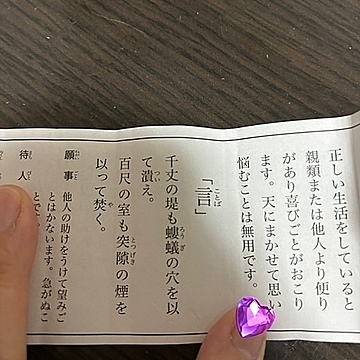 正しい生活をしていると
親類または他人より便り
があり喜びごとがおこり
ます。天にまかせて思い
悩むことは無用です。
「言」
ことば
千丈の堤も螻蟻の穴を以
ろうぎ
て潰え。
つい
百尺の室も突隙の煙を
とつげき
以って焚く。
や
願事 他人の助けをうけて望みご
とはかないます。急がぬこ
とで
待人